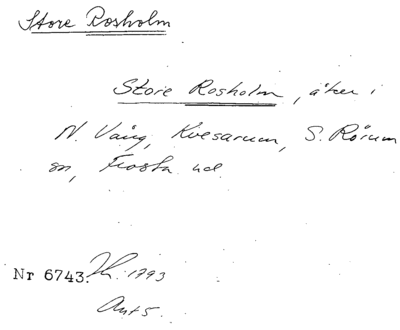 Store Rosholm
Store Rosholm, åker i
N. Vång, Kvesarum, S. Rörum
sn, Frosta hd
Nr 6743. Sk. 1793
Akt 5.